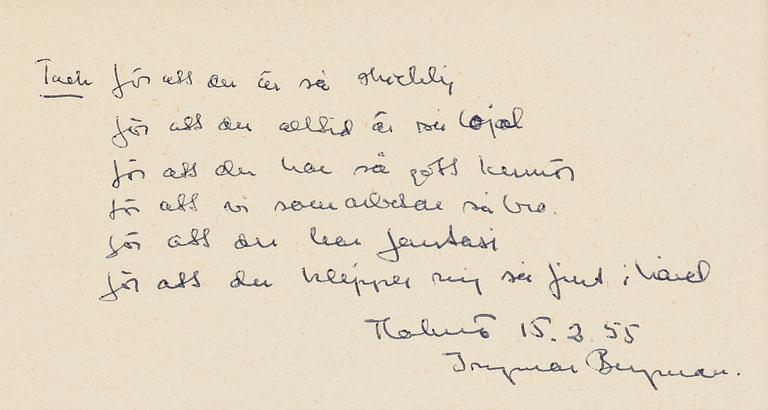 Tack för att du är så skicklig
för att du alltid är så lojal
för att du har så gott humör
för att vi samarbetar så bra.
för att du har fantasi
för att du klipper mig så fint i håret
Malmö 15.2.55
Ingmar Bergman.